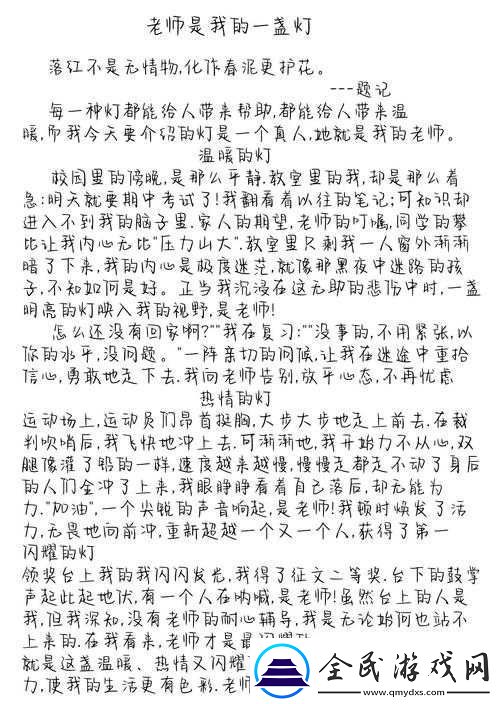 老师是我的一盏灯
落红不是无情物,化作春泥更护花。
---题记
每一种灯都能给人带来帮助,都能给人带来温
暖,而我今天要介绍的灯是一个真人,她就是我的老师。
温暖的灯
校园里的傍晚,是那么平静.教室里的我,却是那么着
急:明天就要期中考试了!我翻看着以往的笔记;可知识却
进入不到我的脑子里.家人的期望,老师的叮嘱,同学的攀
比让我内心无比"压力山大".教室里只剩我一人窗外渐渐
暗了下来,我的内心是极度迷茫,就像那黑夜中迷路的孩
子,不知如何是好。正当我沉浸在这无助的悲伤中时,一盏
明亮的灯映入我的视野,是老师!
怎么还没有回家啊?""我在复习:""没事的,不用紧张,以
你的水平,没问题。"一阵亲切的问候,让我在迷途中重拾
信心,勇敢地走下去.我向老师告别,放平心态,不再忧虑
热情的灯
运动场上,运动员们昂首挺胸,大步大步地走上前去.在裁
判吹哨后,我飞快地冲上去.可渐渐地,我开始力不从心,双
腿像灌了铅的一样,速度越来越慢,慢慢走都走不动了身后
的人们全冲了上来,我眼睁睁看着自己落后,却无能为
力."加油",一个尖锐的声音响起,是老师!我顿时焕发了活
力,无畏地向前冲,重新超越一个又一个人,获得了第一
闪耀的灯
领奖台上我的我闪闪发光,我得了征文二等奖.台下的鼓掌
声起此起地伏,有一个人在呐喊,是老师!虽然台上的人是
我,但我深知,没有老师的耐心辅导,我是无论始何也站不
上来的.在我看来,老师才是最
就是这盏温暖、热情又闪耀
力,使我的生活更有色彩.老师
全民游戏网
www.qmydxs.com